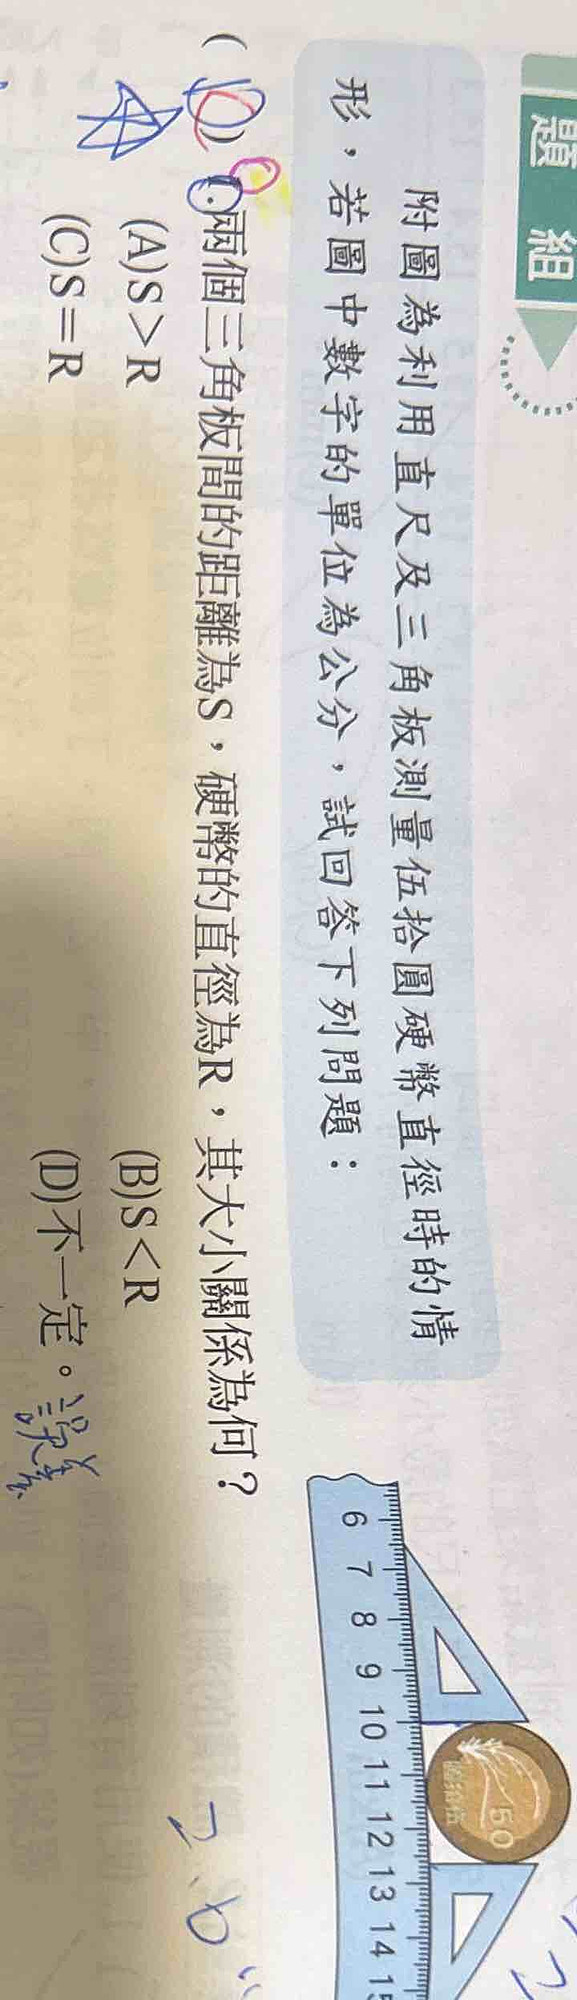 題組
附圖為利用直尺及三角板測量伍拾圓硬幣直徑時的情
形，若圖中數字的單位為公分，試回答下列問題：
( C ) 1.兩個三角板間的距離為S，硬幣的直徑為R，其大小關係為何？
(A)S＞R
(B)S＜R
(C)S＝R
(D)不一定。
誤差
6 7 8 9 10 11 12 13 14 15
50
2.6